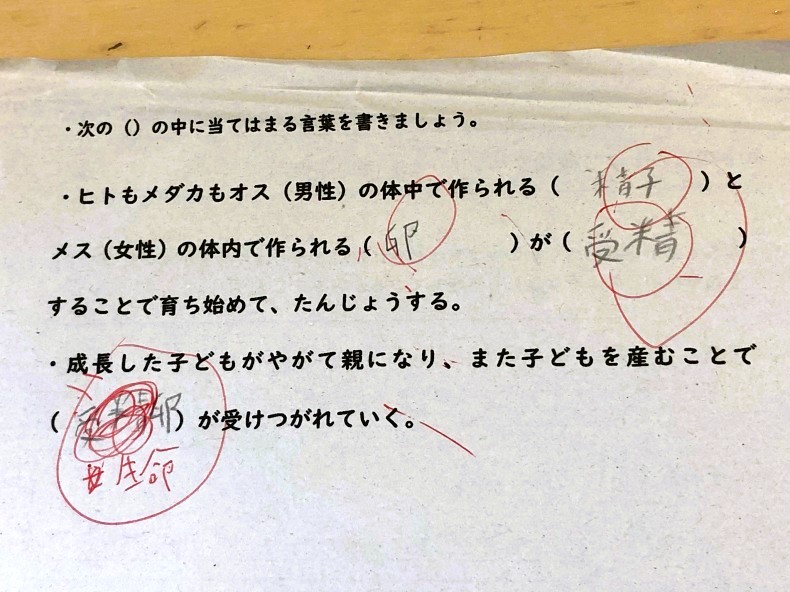 ・次の（）の中に当てはまる言葉を書きましょう。
・ヒトもメダカもオス（男性）の体中で作られる（精子）と
メス（女性）の体内で作られる（卵）が（受精）
することで育ち始めて、たんじょうする。
・成長した子どもがやがて親になり、また子どもを産むことで
（受精卵）が受けつがれていく。
生命